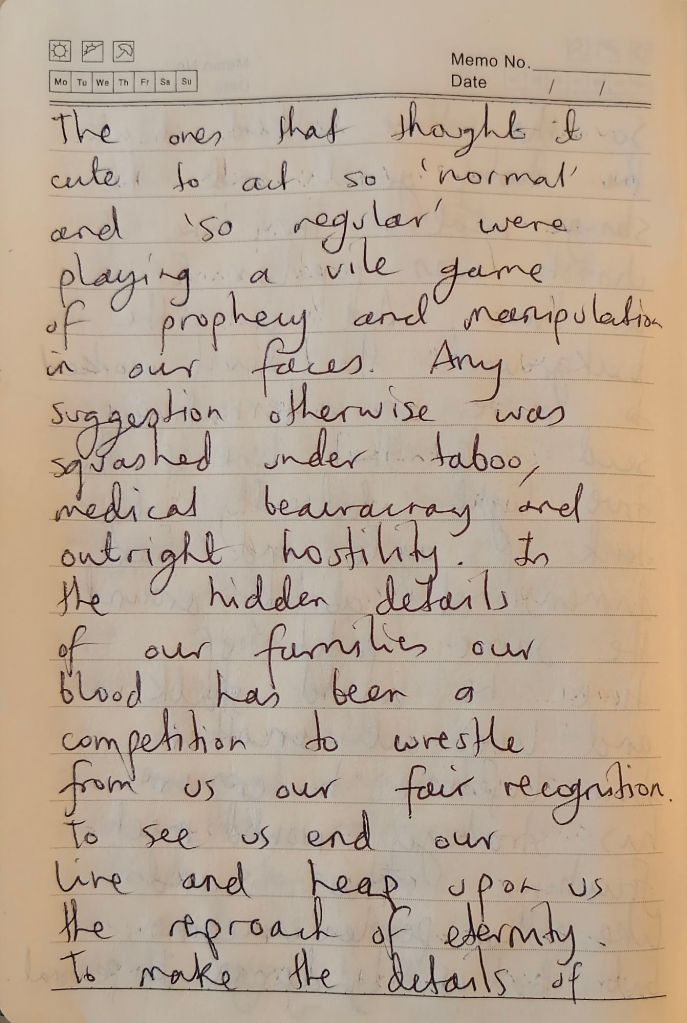 Memo No.
Mo Tu We Th Fr Sa Su
Date / /
The ones that thought it
cute to act so 'normal'
and 'so regular' were
playing a vile game
of prophecy and manipulation
in our faces. Any
suggestion otherwise was
squashed under taboo,
medical beauracray and
outright hostility. In
the hidden details
of our families our
blood has been a
competition to wrestle
from us our fair recognition.
To see us end our
line and heap upon us
the reproach of eternity.
To make the details of